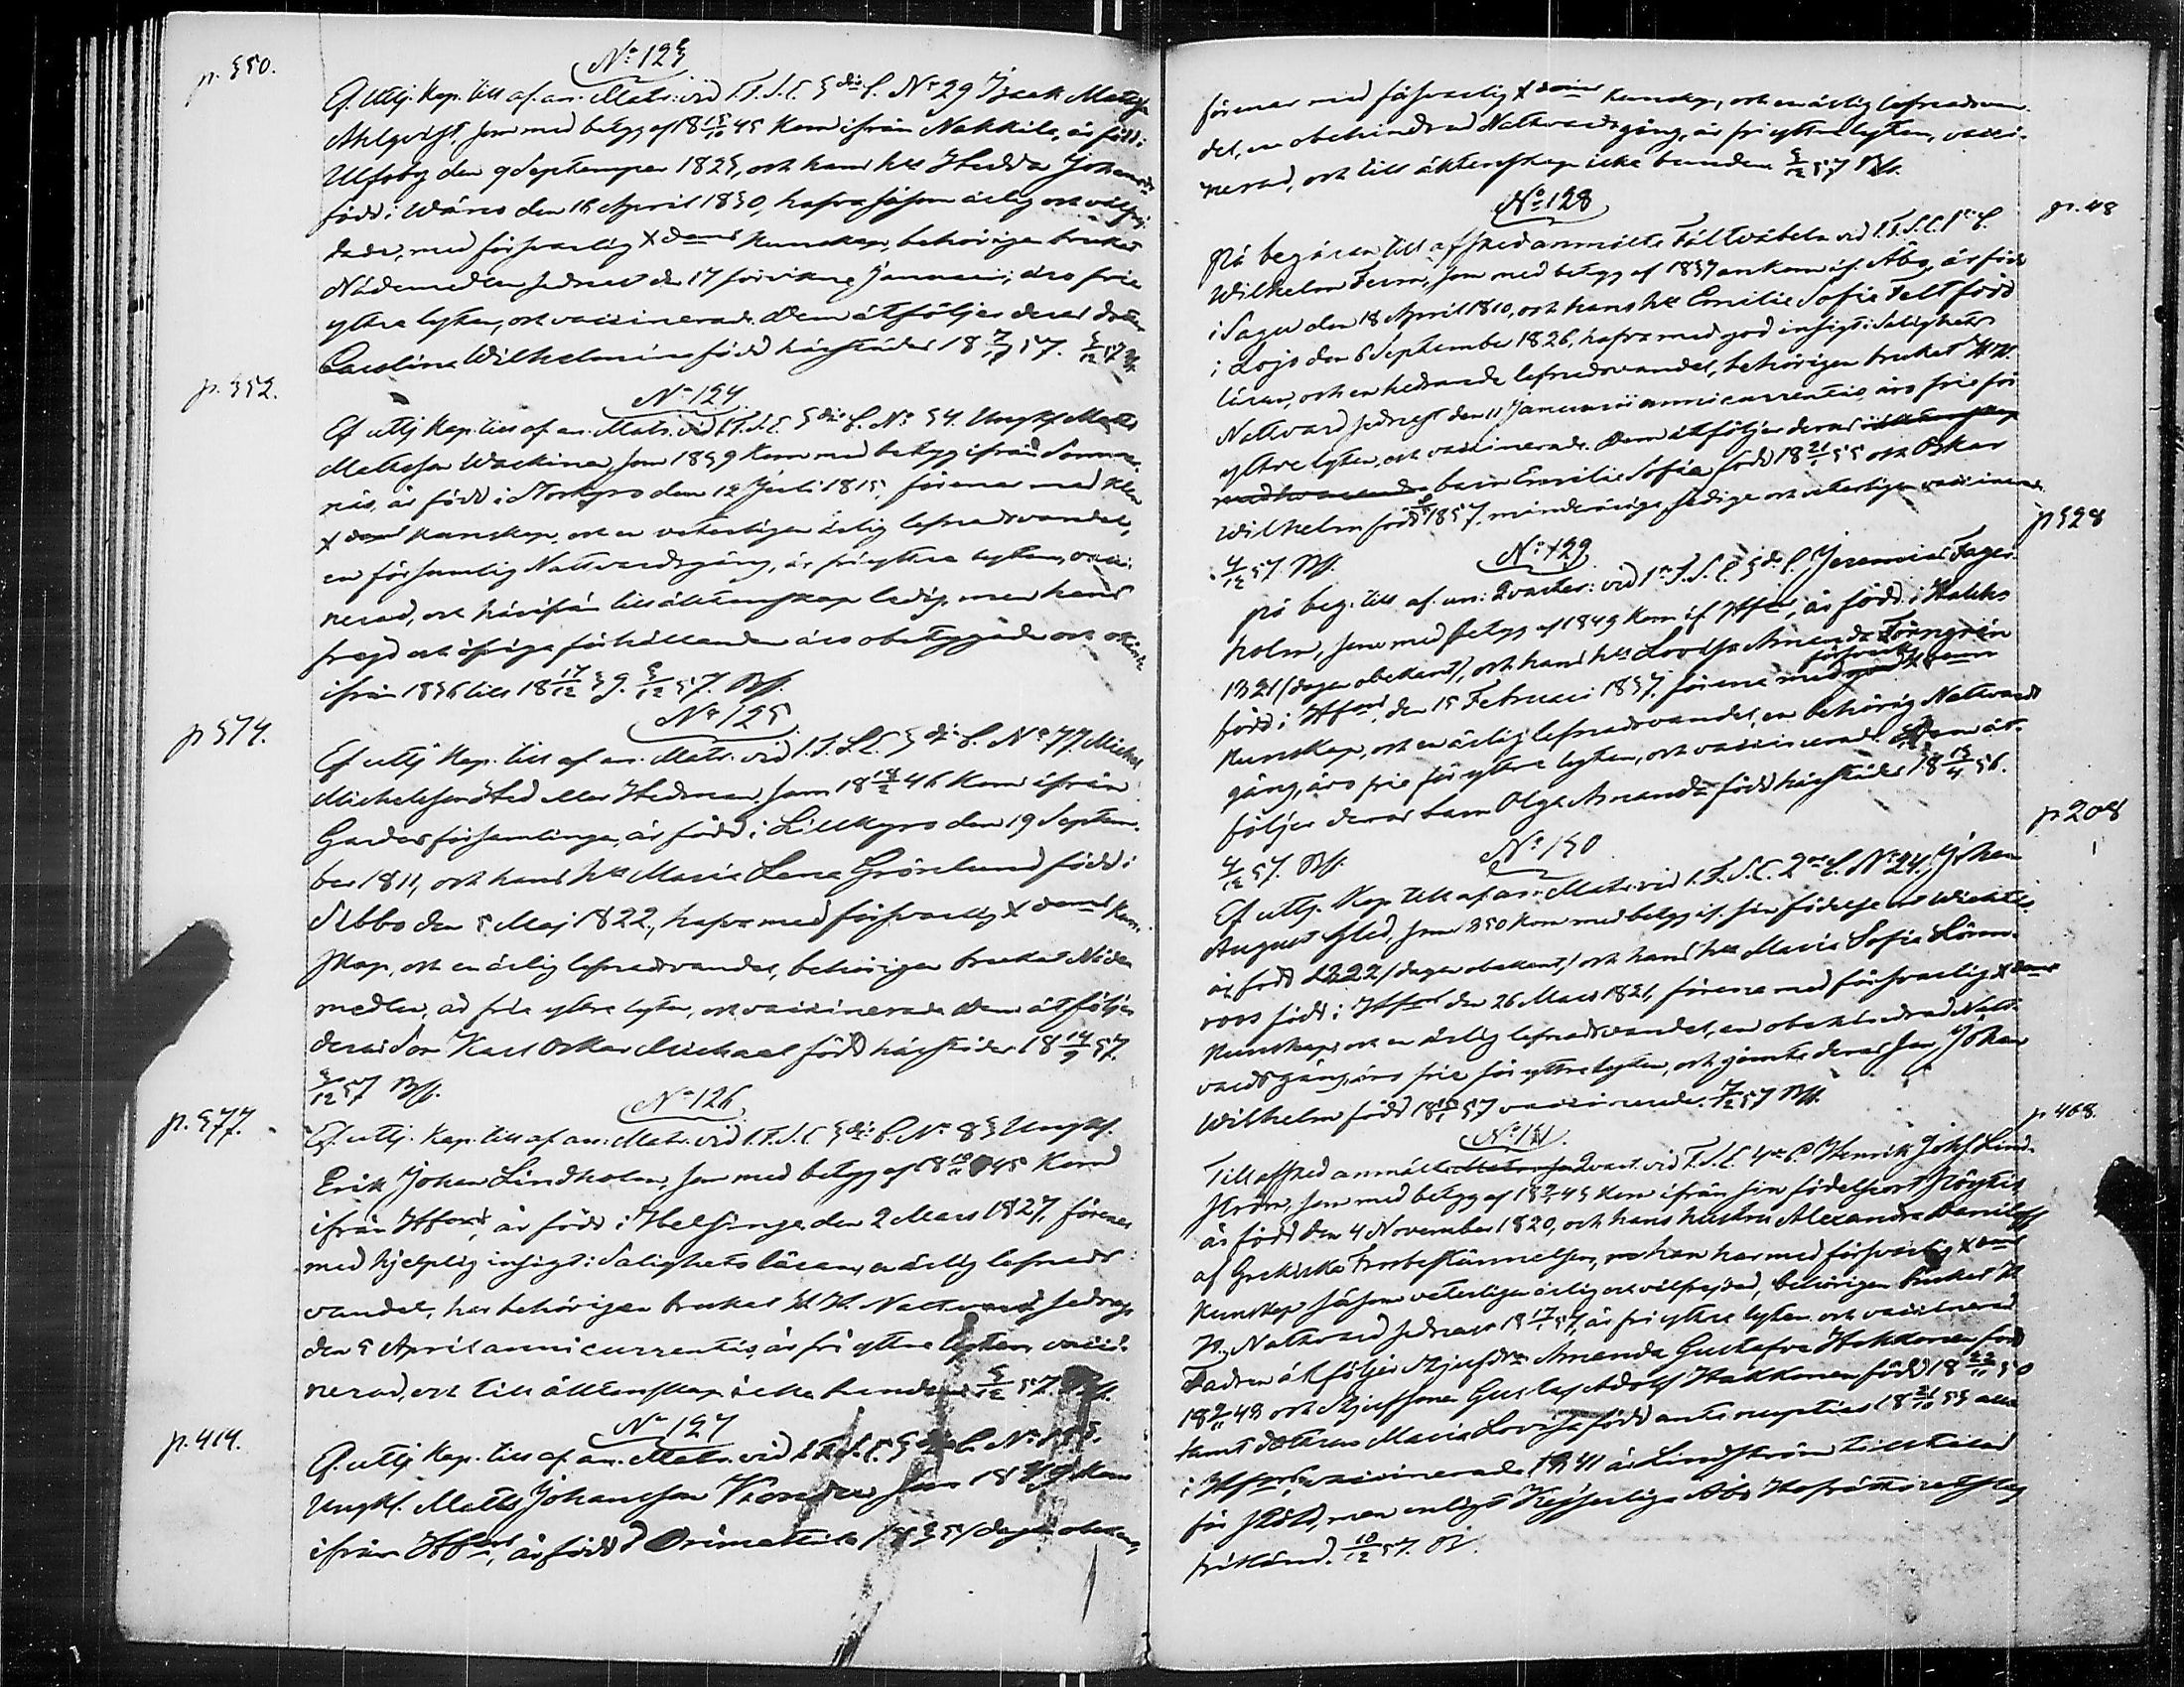 p. 350.
No 123
Ef. utlj. Kap. till af. an. Matr. vid 1. F. S. C. 3die C. No 29 Isaak Matts
Ahlqvist, som med betyg af 18 15/10 45 kom ifrån Nakkila, är född i
Ulfsby den 9 September 1823, och hans hu Hedda Johans
född i Wånå den 16 April 1830, hafva såsom ärlig och välfrej-
dade, med försvarlig Xdoms kunskap, behörigen brukat
Nådemedlen sednast den 17 förvikne Januari; äro frie
yttre lyten, och vaccinerade. Dem åtföljer deras dotter
Carolina Wilhelmina född härstädes 18 7/ 57. 3/12 57
p. 352.
No 124
Ef utlj Kap. till af. an. Matr. vid 1. F. S. C. 3die C. No 54. Ungkl. Matts
Mattsson Waskinen, som 1839 kom med betyg ifrån Sommar-
näs, är född i Storkyro den 12 Juli 1815, förenar med klen
Xdoms kunskap, och en veterligen ärlig lefnadsvandel,
en försumlig Nattvardsgång, är fri yttre lyten, vacci-
nerad, och härifrån till äktenskap ledig, men hans
frejd och öfriga förhållanden äro obetygade och okände
ifrån 1836 till 18 17/12 39. 3/12 57. Bff.
p 374.
No 125
Ef utlj Kap. till af an. Matr. vid 1. F. S. C. 3die C. No 77 Michel
Michelsson Hed eller Hedman, som 18 18/2 46 kom ifrån
Gardesförsamlingen, är född i Lillkyro den 19 Septem-
ber 1811, och hans hu Maria Lena Grönlund född i
Sibbo den 5 Maj 1822, hafva med försvarlig Xdoms kun-
skap, och en ärlig lefnadsvandel, behörigen brukat Nåde-
medlen, äro frie yttre lyten, och vaccinerade. Dem åtföljer
deras Son Karl Oskar Michael född härstädes 18 14/9 57.
3/12 57 Bff.
p. 377.
No 126
Ef. utlj. Kap. till af an: Matr. vid 1. F. S. C 3die C. No 83 Ungkl.
Erik Johan Lindholm, som med betyg af 18 19/11 45 kom
ifrån Hfors, är född i Helsinge den 2 Mars 1827, förenar
med hjelplig insigt i Salighets läran, en ärlig lefnads-
vandel, har behörigen brukat H. H. Nattvard sednast
den 5 April anni currentis, är fri yttre lyten, vacci-
nerad, och till äktenskap icke bunden. 3/12 57. Bff.
p. 414.
No 127
Ef. utlj Kap. till af. an. Matr. vid 1. F. S. C. 3die C. No
Ungkl. Matts Johansson som 18 kom
ifrån Hfors, är född i Orimattila 1835 (dagen obekant,
förenar med försvarlig Xdoms kunskap, och en ärlig lefnadsvan-
del, en obehindrad Nattvardsgång, är fri yttre lyten, vacci-
nerad, och till äktenskap icke bunden 3/12 57 Bff.
p. 48
No 128
På begäran till afsked anmälte Fältväbeln vid 1. F. S. C. 1sta C.
Wilhelm Ferm, som med betyg af 1837 ankom if. Åbo, är född
i Sagu den 18 April 1810, och hans hu Emilie Sofia Telt född
i Lojo den 6 September 1826, hafva med god insigt i Salighets
läran, och en hedrande lefnadsvandel, behörigen brukat H. H.
Nattvard sednast den 11 Januari anni currentis, äro frie för
yttre lyten, och vaccinerade. Dem åtföljer deras i äktenskap
barn Emilie Sofia född 18 21/ 55 och Oskar
Wilhelm född 1857, minderårige, sedige och veterligen vaccinerade
4/12 57. Bff.
p 328
No 129
På beg. till af. an: Qvarter: vid 1a F. S. C. 3de C. Jeremias Fager-
holm, som med betyg af 1849 kom if. Hfors, är född i Halikko
1821 (dagen obekant), och hans hu Lovisa Amanda Törngrén
född i Hfors, den 15 Februari 1837, förena med försvarl. Xdoms
kunskap, och en ärlig lefnadsvandel, en behörig Nattvards
gång, äro frie för yttre lyten, och vaccinerade. Dem åt-
följer deras barn Olga Amanda född härstädes 18 13/4 56.
4/12 57. Bff.
p 208
No 130
Ef utlj. Kap till af an: Matr. vid 1. F. S. C. 2dra C. No 24. Johan
August Glad, som 1850 kom med betyg if. sin födelseort Wichtis,
är född 1822 (dagen obekant) och hans hu Maria Sofia Lönn-
roos född i Hfors den 26 Mars 1821, förena med försvarlig Xdoms
kunskap, och en ärlig lefnadsvandel, en obehindrad Natt-
vardsgång, äro frie för yttre lyten, och jemte deras son Johan
Wilhelm född 18 57 vaccinerade. 7/12 57 Bff.
p. 468.
No 131.
Till afsked anmälte Qvart. vid F. S. C. 4de C. Henrik Johs. Lind-
ström, som med betyg af 18 43 kom ifrån sin födelseort
är född den 4 November 1820, och hans hustru Alexandra Daniloff
af Grekiska Trosbekännelsen, men han har med försvarlig Xdoms
kunskap såsom veterligen ärlig och välfrejdad, behörigen brukat H.
H. Nattvard sednast 18 17/1 57, är fri yttre lyten och vaccinerad
Fadren åtföljer Styfdr Amanda Gustafva Hakkonen född
18 9/11 48 och Styfsonen Gustaf Adolf Hakkonen född 18 50
samt dottren Maria Lovisa född ante nuptias 18 21/10 53 alla
i Hfors, vaccinerade. 1841 är Lindström tilltalad
för stöld, men enligt Kejserliga Åbo Hofrätts utslag
frikänd. 10/12 57.